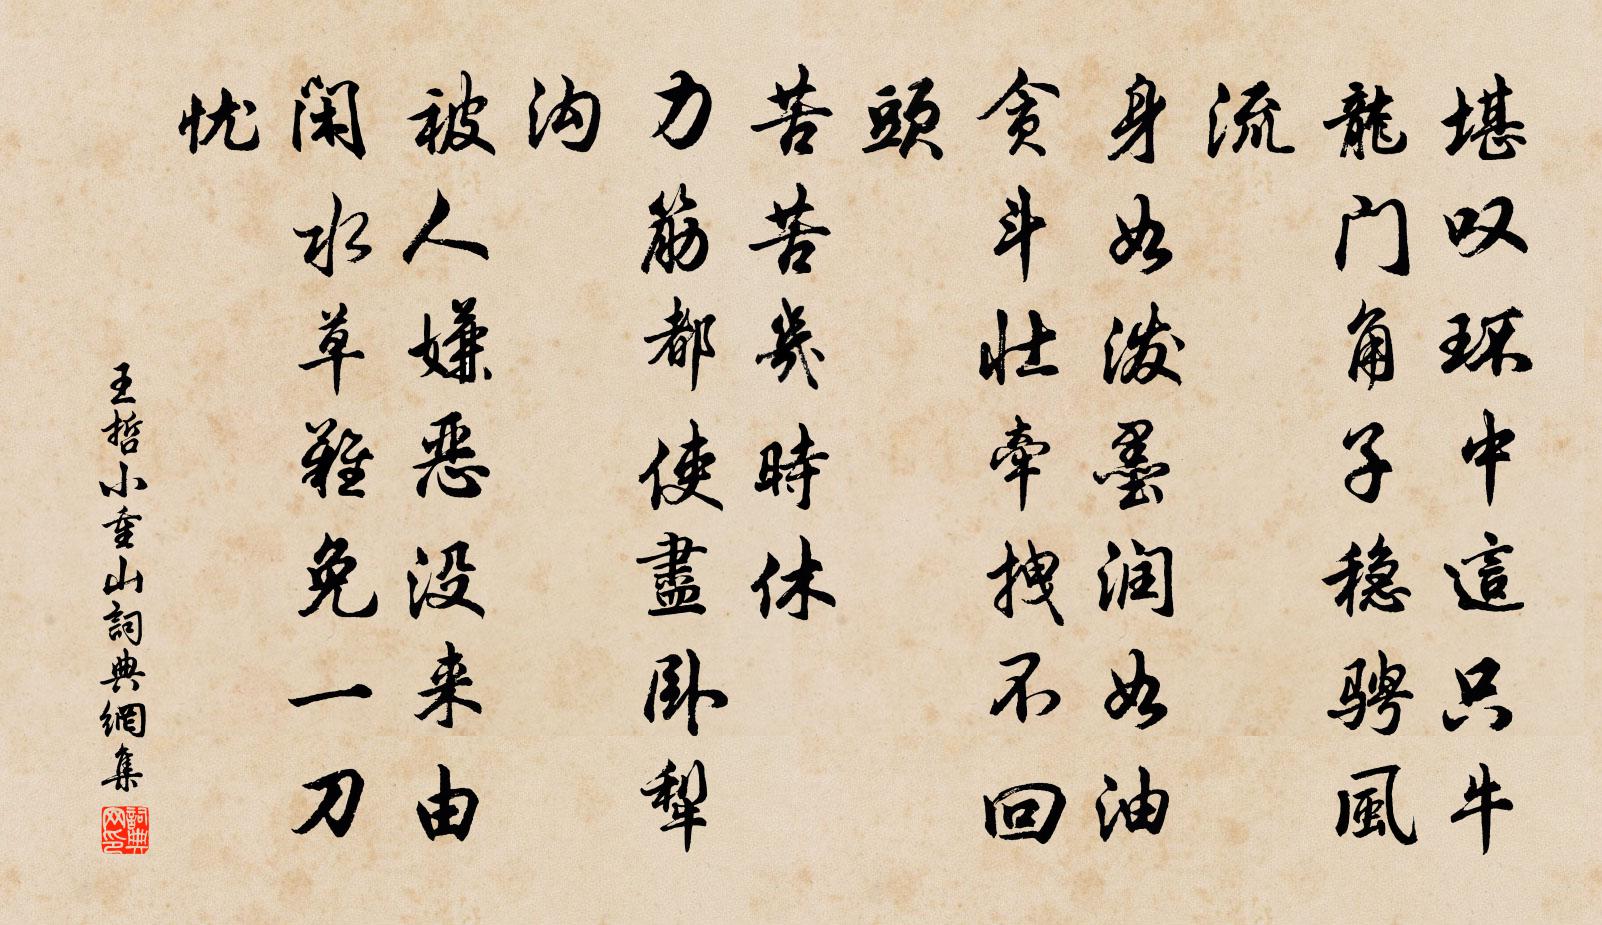 堪叹环中這只牛
龍门角子稳骋風
流
身如泼墨润如油
贪斗壮牵拽不回
頭
苦苦幾時休
力筋都使盡卧犁
沟
被人嫌恶没来由
闲水草難免一刀
忧
王哲小重山詞典網集
詞典网印